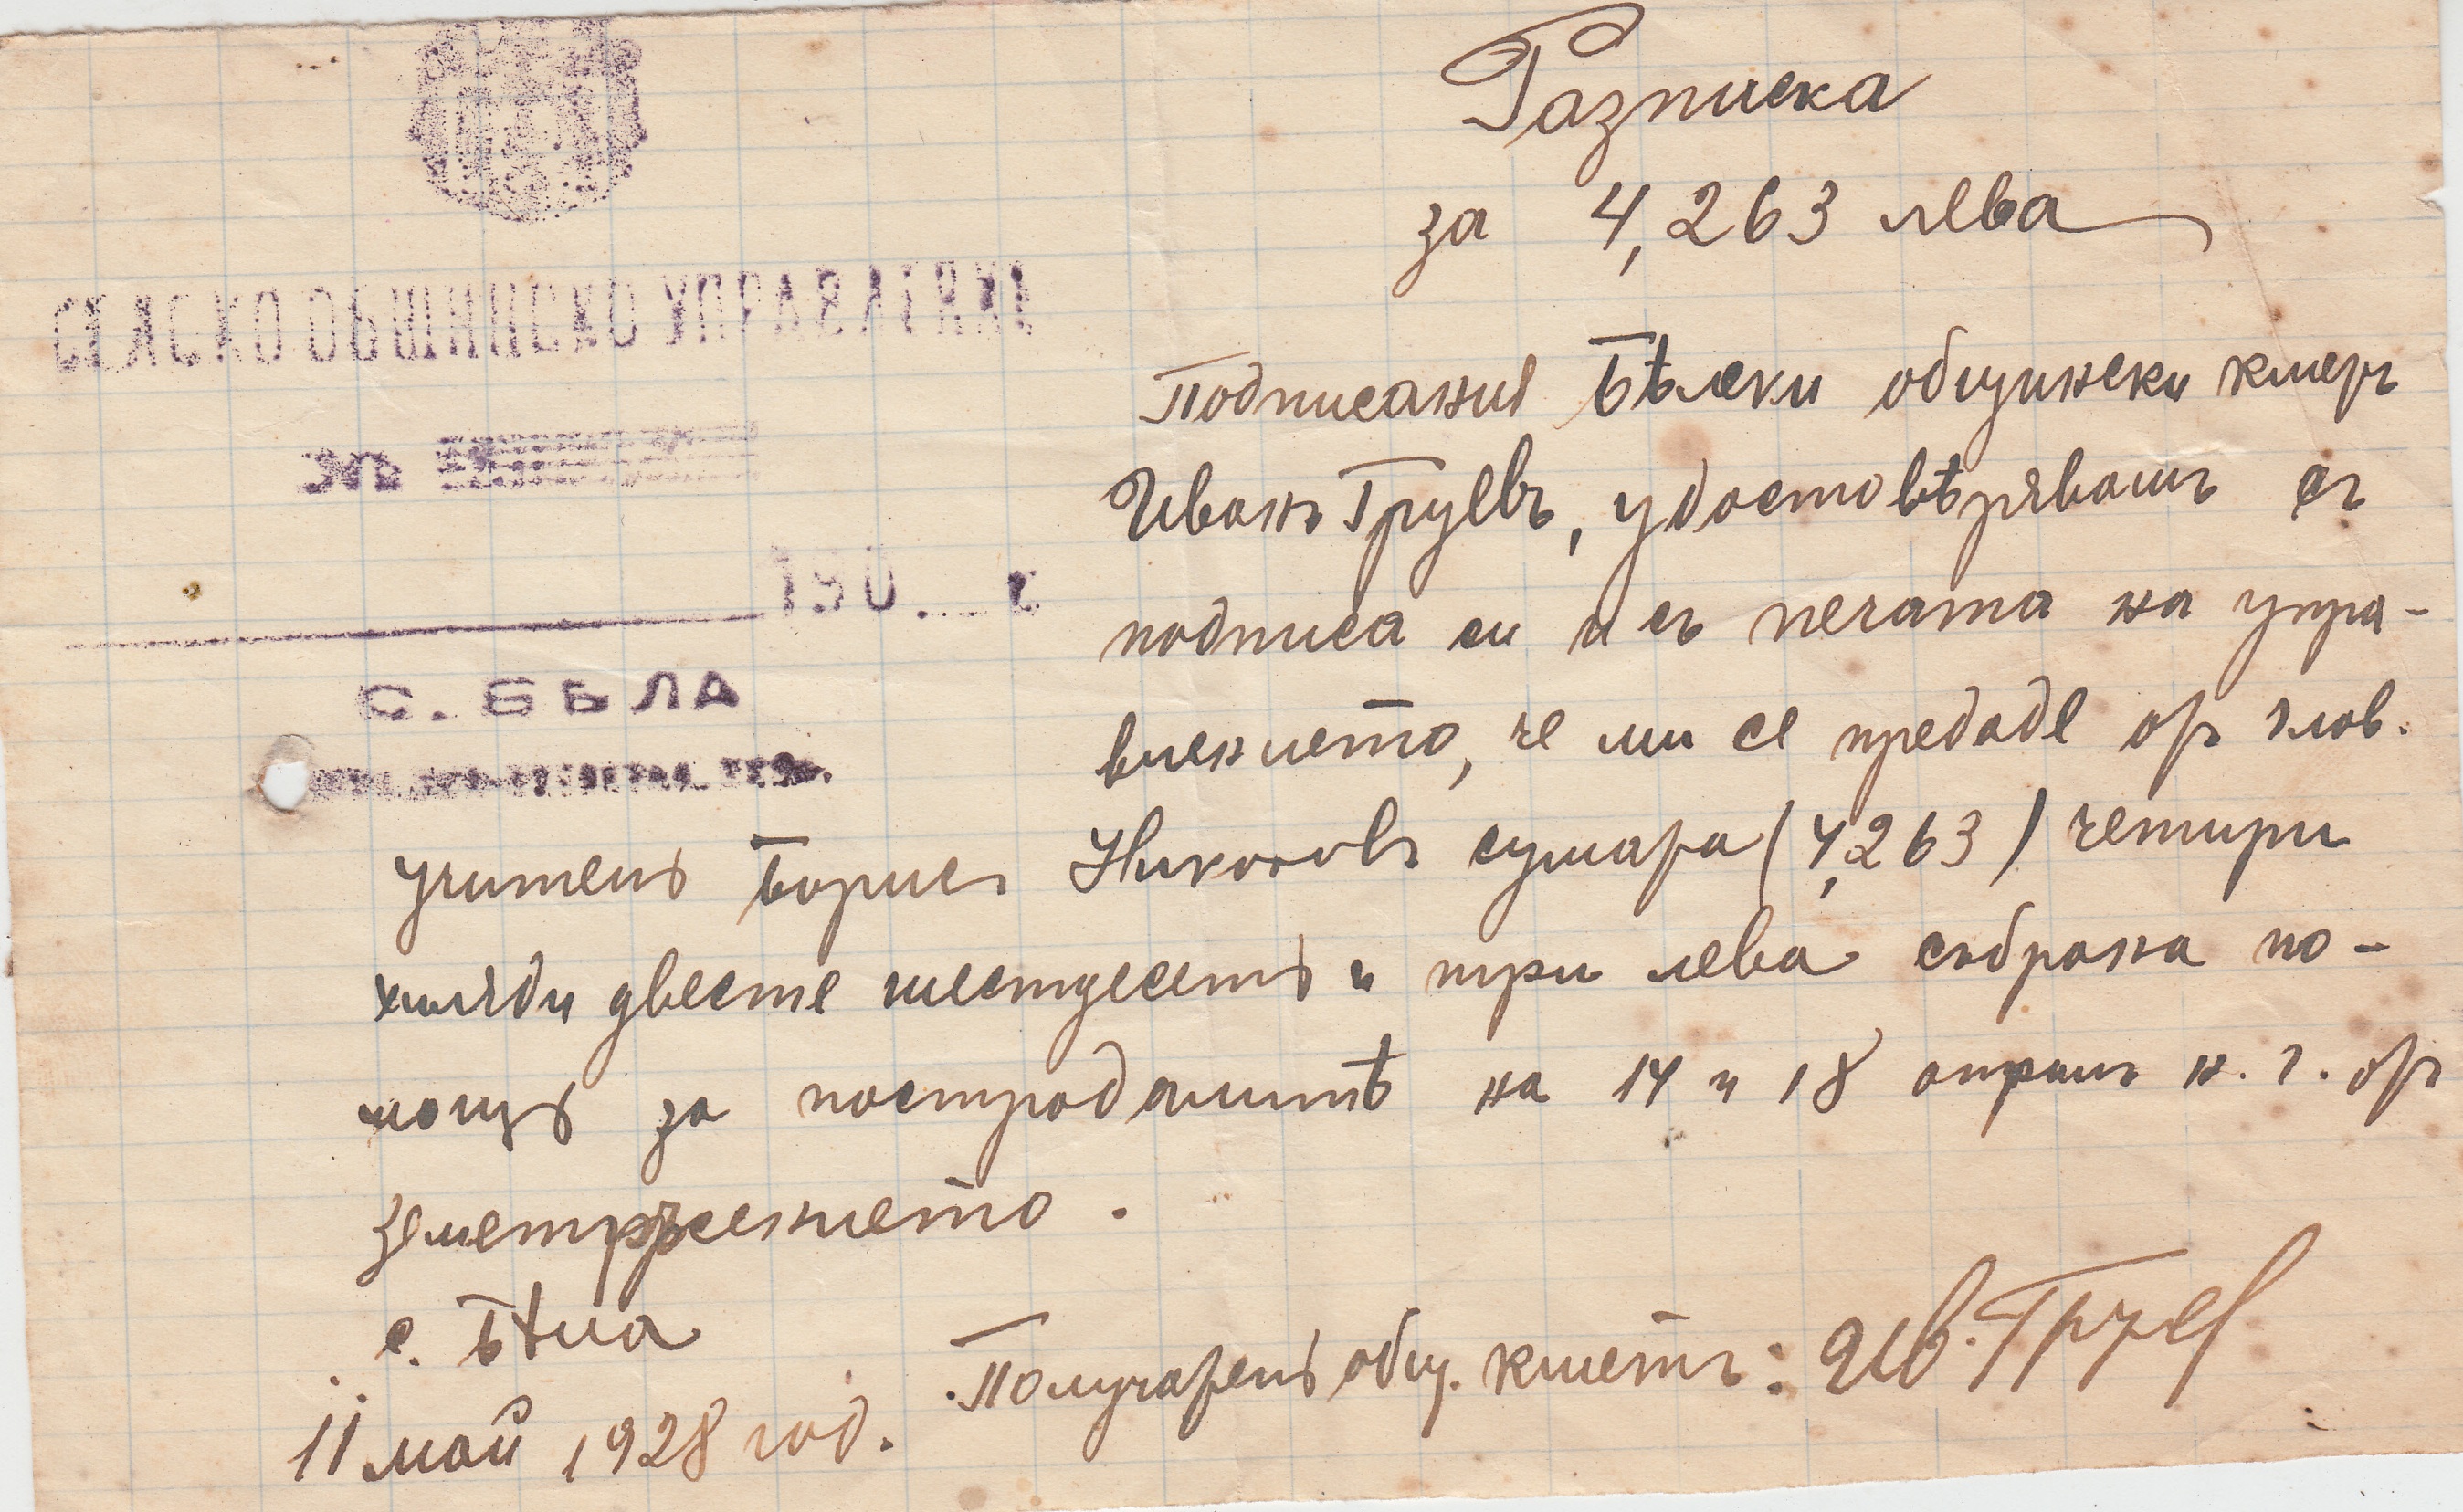 СЕЛСКО ОБЩИНСКО УПРАВЛЕНИЕ
№
190 г.
с. БѢЛА
Разписка
за 4,263 лева
Подписания Бѣлски общински кметъ
Иванъ Груевъ, удостовѣрявамъ съ
подписа си и съ печата на упра-
влението, че ми се предаде отъ глав.
учитель Борисъ Николовъ сумата (4,263) четири
хиляди двесте шестдесеть и три лева събрана по-
мощь за пострадалитѣ на 14 и 18 априлъ н. г. отъ
земетръсението.
с. Бѣла
11 май 1928 год.
Получатель общ. кметъ: Ив. Груев